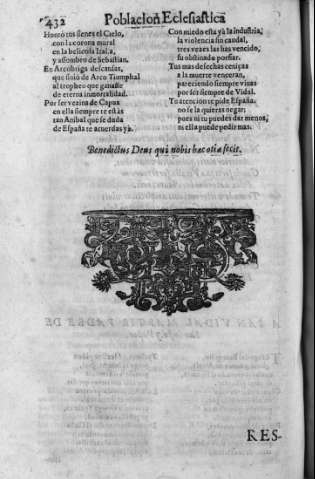 432 Poblacion Eclesiastica
Honró tus sienes el Cielo,
con la corona mural
en la belicosa Italia,
y assombro de Sebastian.
En Arcobriga descansas,
que siruió de Arco Triumphal
al tropheo que ganaste
de eterna inmortalidad.
Por ser vezina de Capua
en ella siempre te estás
tan Anibal que se duda
de España te acuerdas yà.
Con miedo esta yà la industria,
la violencia sin caudal,
tres vezes las has vencido,
su obstinado porfiar.
Tus mas deshechas cenizas
a la muerte venceran,
pareciendo siempre viuas
por ser siempre de Vidal.
Tu atencion te pide España,
no se la quieras negar;
pues ni tu puedes dar menos,
ni ella puede pedir mas.
Benedictus Deus qui nobis hæc otia fecit.
RES-